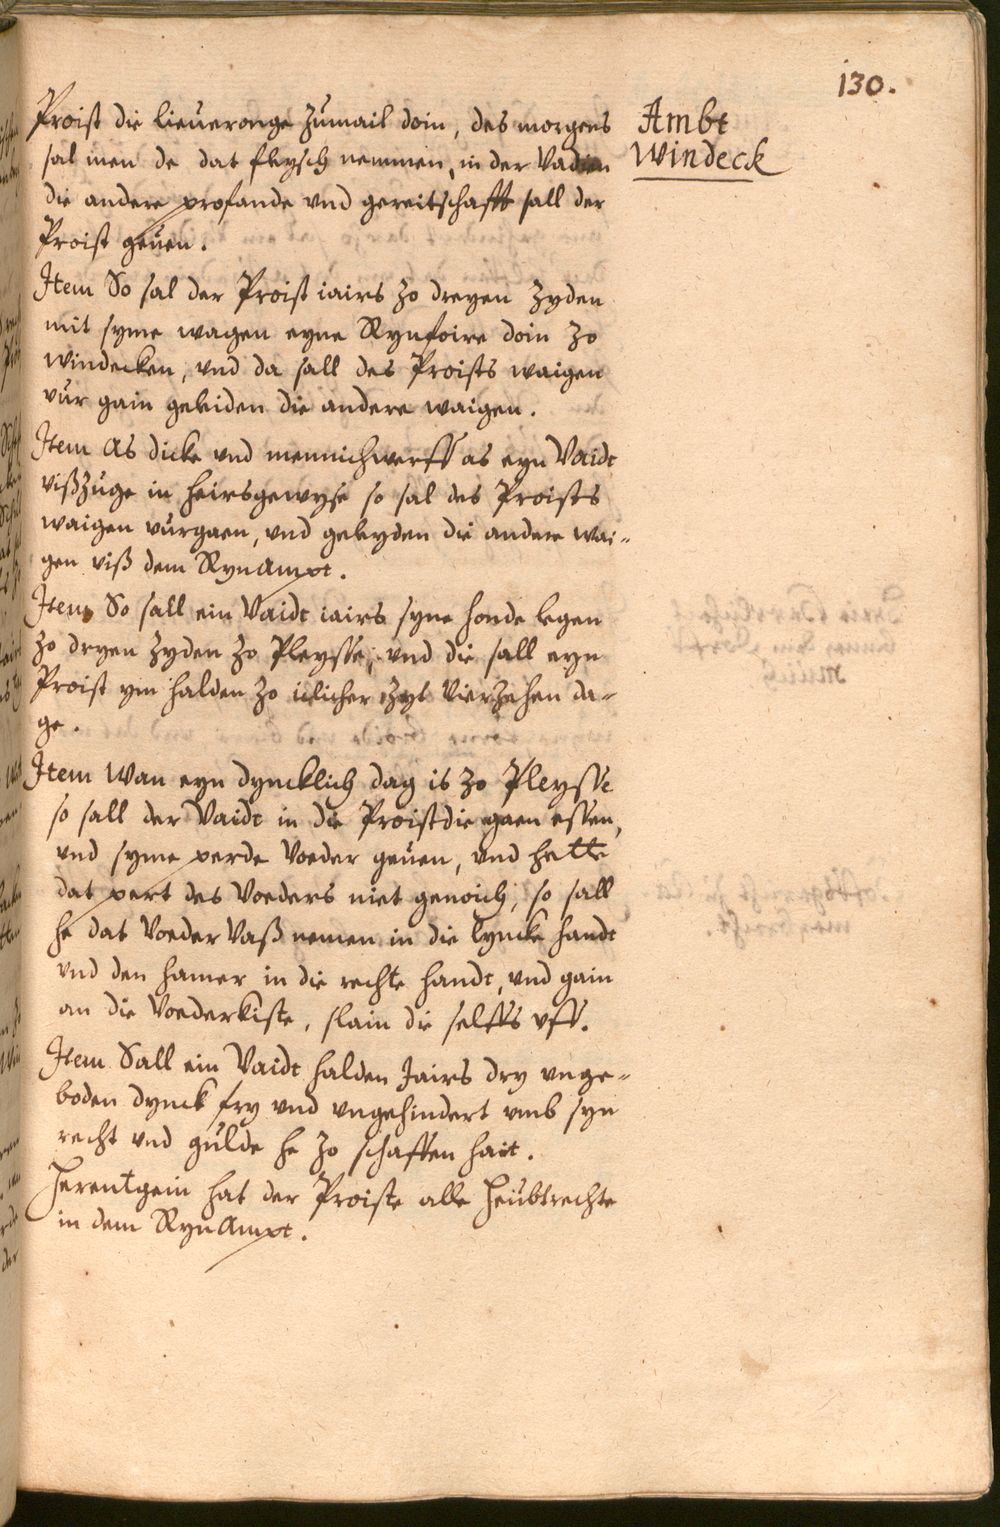 130.
Ambt
Windeck
Proist die lieueronge zumail doin, des morgens
sal men de dat fleysch nemmen, in der Vadien
die andere profande vnd gereitschafft sall der
Proist geuen.
Item So sal der Proist iairs zo dreyen zyden
mit syme wagen eyne Rynfoire doin zo
windecken, vnd da sall des Proists waigen
vur gain geleiden die andere waigen.
Item As dicke vnd mennichwerff as eyn Vaidt
vißzuge in heirsgewyse so sal des Proists
waigen vurgaen, vnd geleyden die andere wai-
gen viß dem RynAmpt.
Item So sall ein Vaidt iairs syne honde legen
zo dryen zyden zo Pleysse, vnd die sall eyn
Proist ym halden zo iclicher zyt Vierzehen da-
ge.
Item Wan eyn dyncklich dag is zo Pleysse
so sall der Vaidt in die Proistdie gaen essen,
vnd syme perde Voeder geuen, vnd hette
dat pert des Voeders niet genoich, so sall
he das Voeder Vaß nemen in die lyncke handt
vnd den hamer in die rechte handt, vnd gain
an die Voederkiste, slain die selffs vff.
Item Sall ein Vaidt halden Jairs dry vnge-
boden dynck fry vnd vngehindert vmb syn
recht vnd gulde he zo schaffen hait.
Herentgein hat der Proiste alle Heubtrechte
in dem RynAmpt.